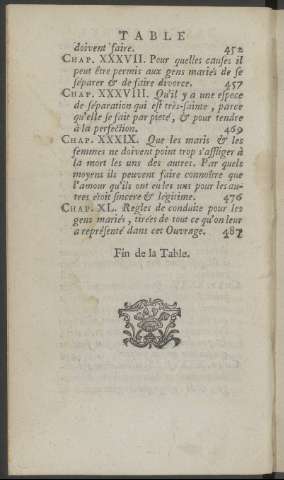 TABLE
doivent faire. 452
CHAP. XXXVII. Pour quelles causes il
peut être permis aux gens mariés de se
séparer & de faire divorce. 457
CHAP. XXXVIII. Qu'il y a une espece
de séparation qui est très-sainte, parce
qu'elle se fait par pieté, & pour tendre
à la perfection. 469
CHAP. XXXIX. Que les maris & les
femmes ne doivent point trop s'affliger à
la mort les uns des autres. Par quels
moyens ils peuvent faire connoître que
l'amour qu'ils ont eu les uns pour les au-
tres étoit sincere & légitime. 476
CHAP. XL. Regles de conduite pour les
gens mariés, tirées de tout ce qu'on leur
a représenté dans cet Ouvrage. 487
Fin de la Table.